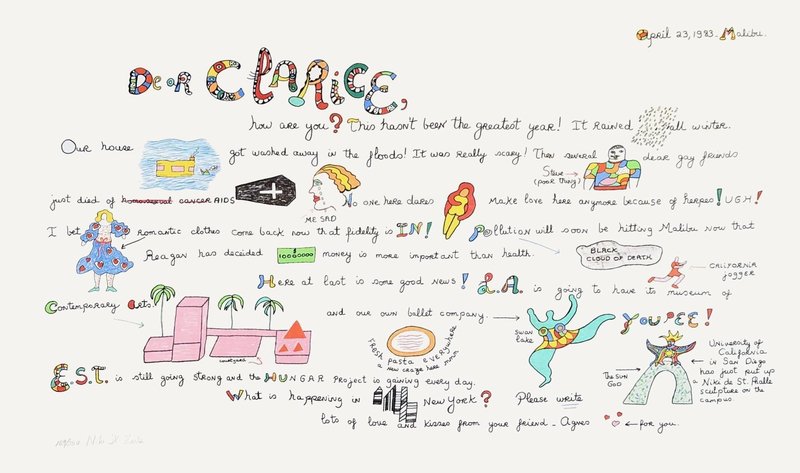 April 23, 1983 - Malibu.
Dear CLARICE,
how are you? This hasn't been the greatest year! It RAINED all winter.
Our house got washed away in the floods! It was really scary! Then several dear gay friends
Steve (poor thing)
just died of homosexual CANCER AIDS No one here dares make love here anymore because of herpes! UGH!
ME SAD
I bet romantic clothes come back now that fidelity is IN! Pollution will soon be hitting Malibu now that
Reagan has decided 10000000 money is more important than health.
BLACK CLOUD OF DEATH
CALIFORNIA jogger
Here at last is some good news! L.A. is going to have its museum of
Contemporary Arts. and our own ballet company. YOUPEE!
swan lake
courtyard
FRESH pasta EVERYwhere
a new craze here mmm
University of California in San Diego has just put up a Niki de St. Phalle sculpture on the campus
The SUN GOD
E.S.T. is still going strong and the HUNGAR Project is gaining every day.
What is happening in New York? Please write
lots of love and kisses from your friend - Agnes for you.